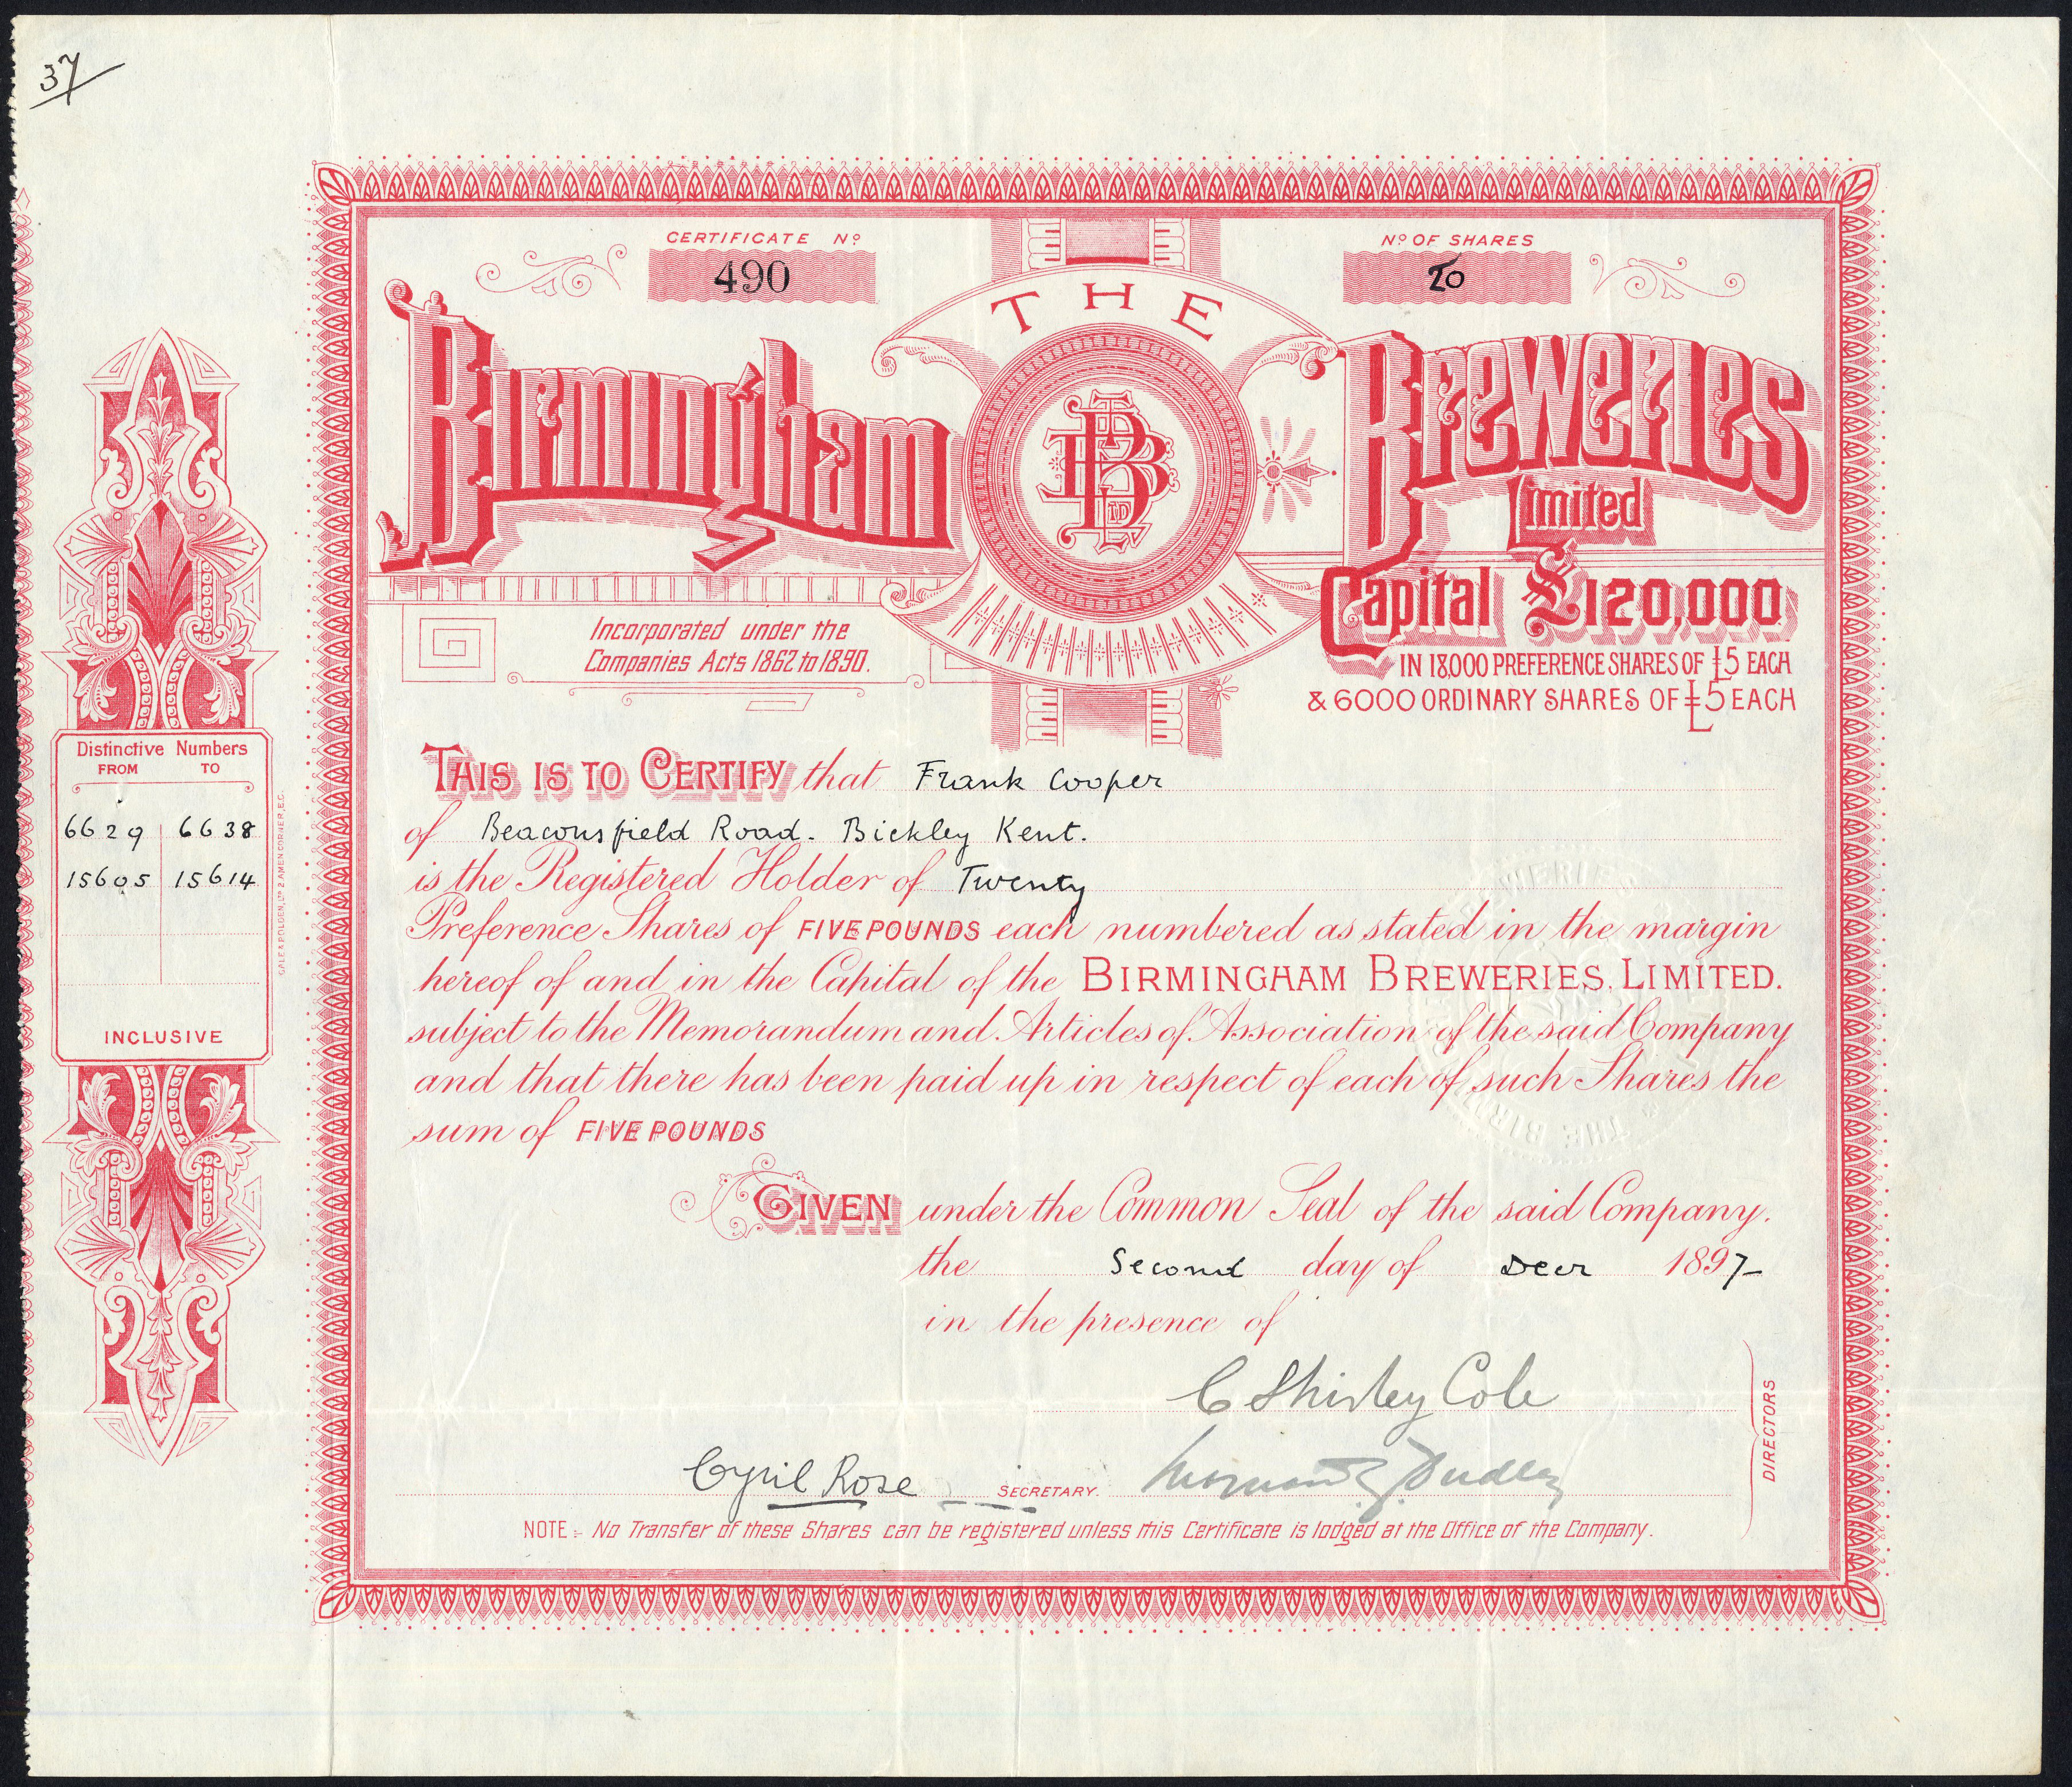 37
CERTIFICATE Nº
490
Nº OF SHARES
20
THE
Birmingham
Breweries
Limited
BB LTD
Capital £120,000
IN 18,000 PREFERENCE SHARES OF £5 EACH
& 6000 ORDINARY SHARES OF £5 EACH
Incorporated under the
Companies Acts 1862 to 1890.
Distinctive Numbers
FROM TO
6629 6638
15605 15614
INCLUSIVE
GALE & POLDEN, LTD 2, AMEN CORNER, E.C.
THIS IS TO CERTIFY that Frank Cooper
of Beaconsfield Road. Bickley Kent.
is the Registered Holder of Twenty
Preference Shares of FIVE POUNDS each numbered as stated in the margin
hereof of and in the Capital of the BIRMINGHAM BREWERIES, LIMITED.
subject to the Memorandum and Articles of Association of the said Company
and that there has been paid up in respect of each of such Shares the
sum of FIVE POUNDS
GIVEN under the Common Seal of the said Company.
the Second day of Decr 1897
in the presence of
C Shirley Cole
Cyril Rose SECRETARY. Dudley
DIRECTORS
NOTE:- No Transfer of these Shares can be registered unless this Certificate is lodged at the Office of the Company.